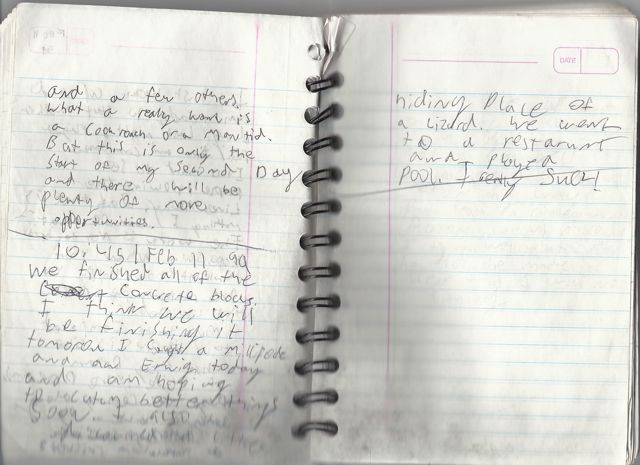 and a few others.
what a really want is
a Cockroach or a Mantid.
But this is only the
start of my Second Day
and there will be
plenty of more
opportunities.
10:45 | Feb 11 99
we finished all of the
Concrete blocks.
I think we will
be finishing it
tomorow I caught a millipede
and an Erwig today
and I am hoping
to cature better things
Soon. I also
hiding Place of
a lizard. We went
to a restarunt
and played
Pool I really Suck!
DATE